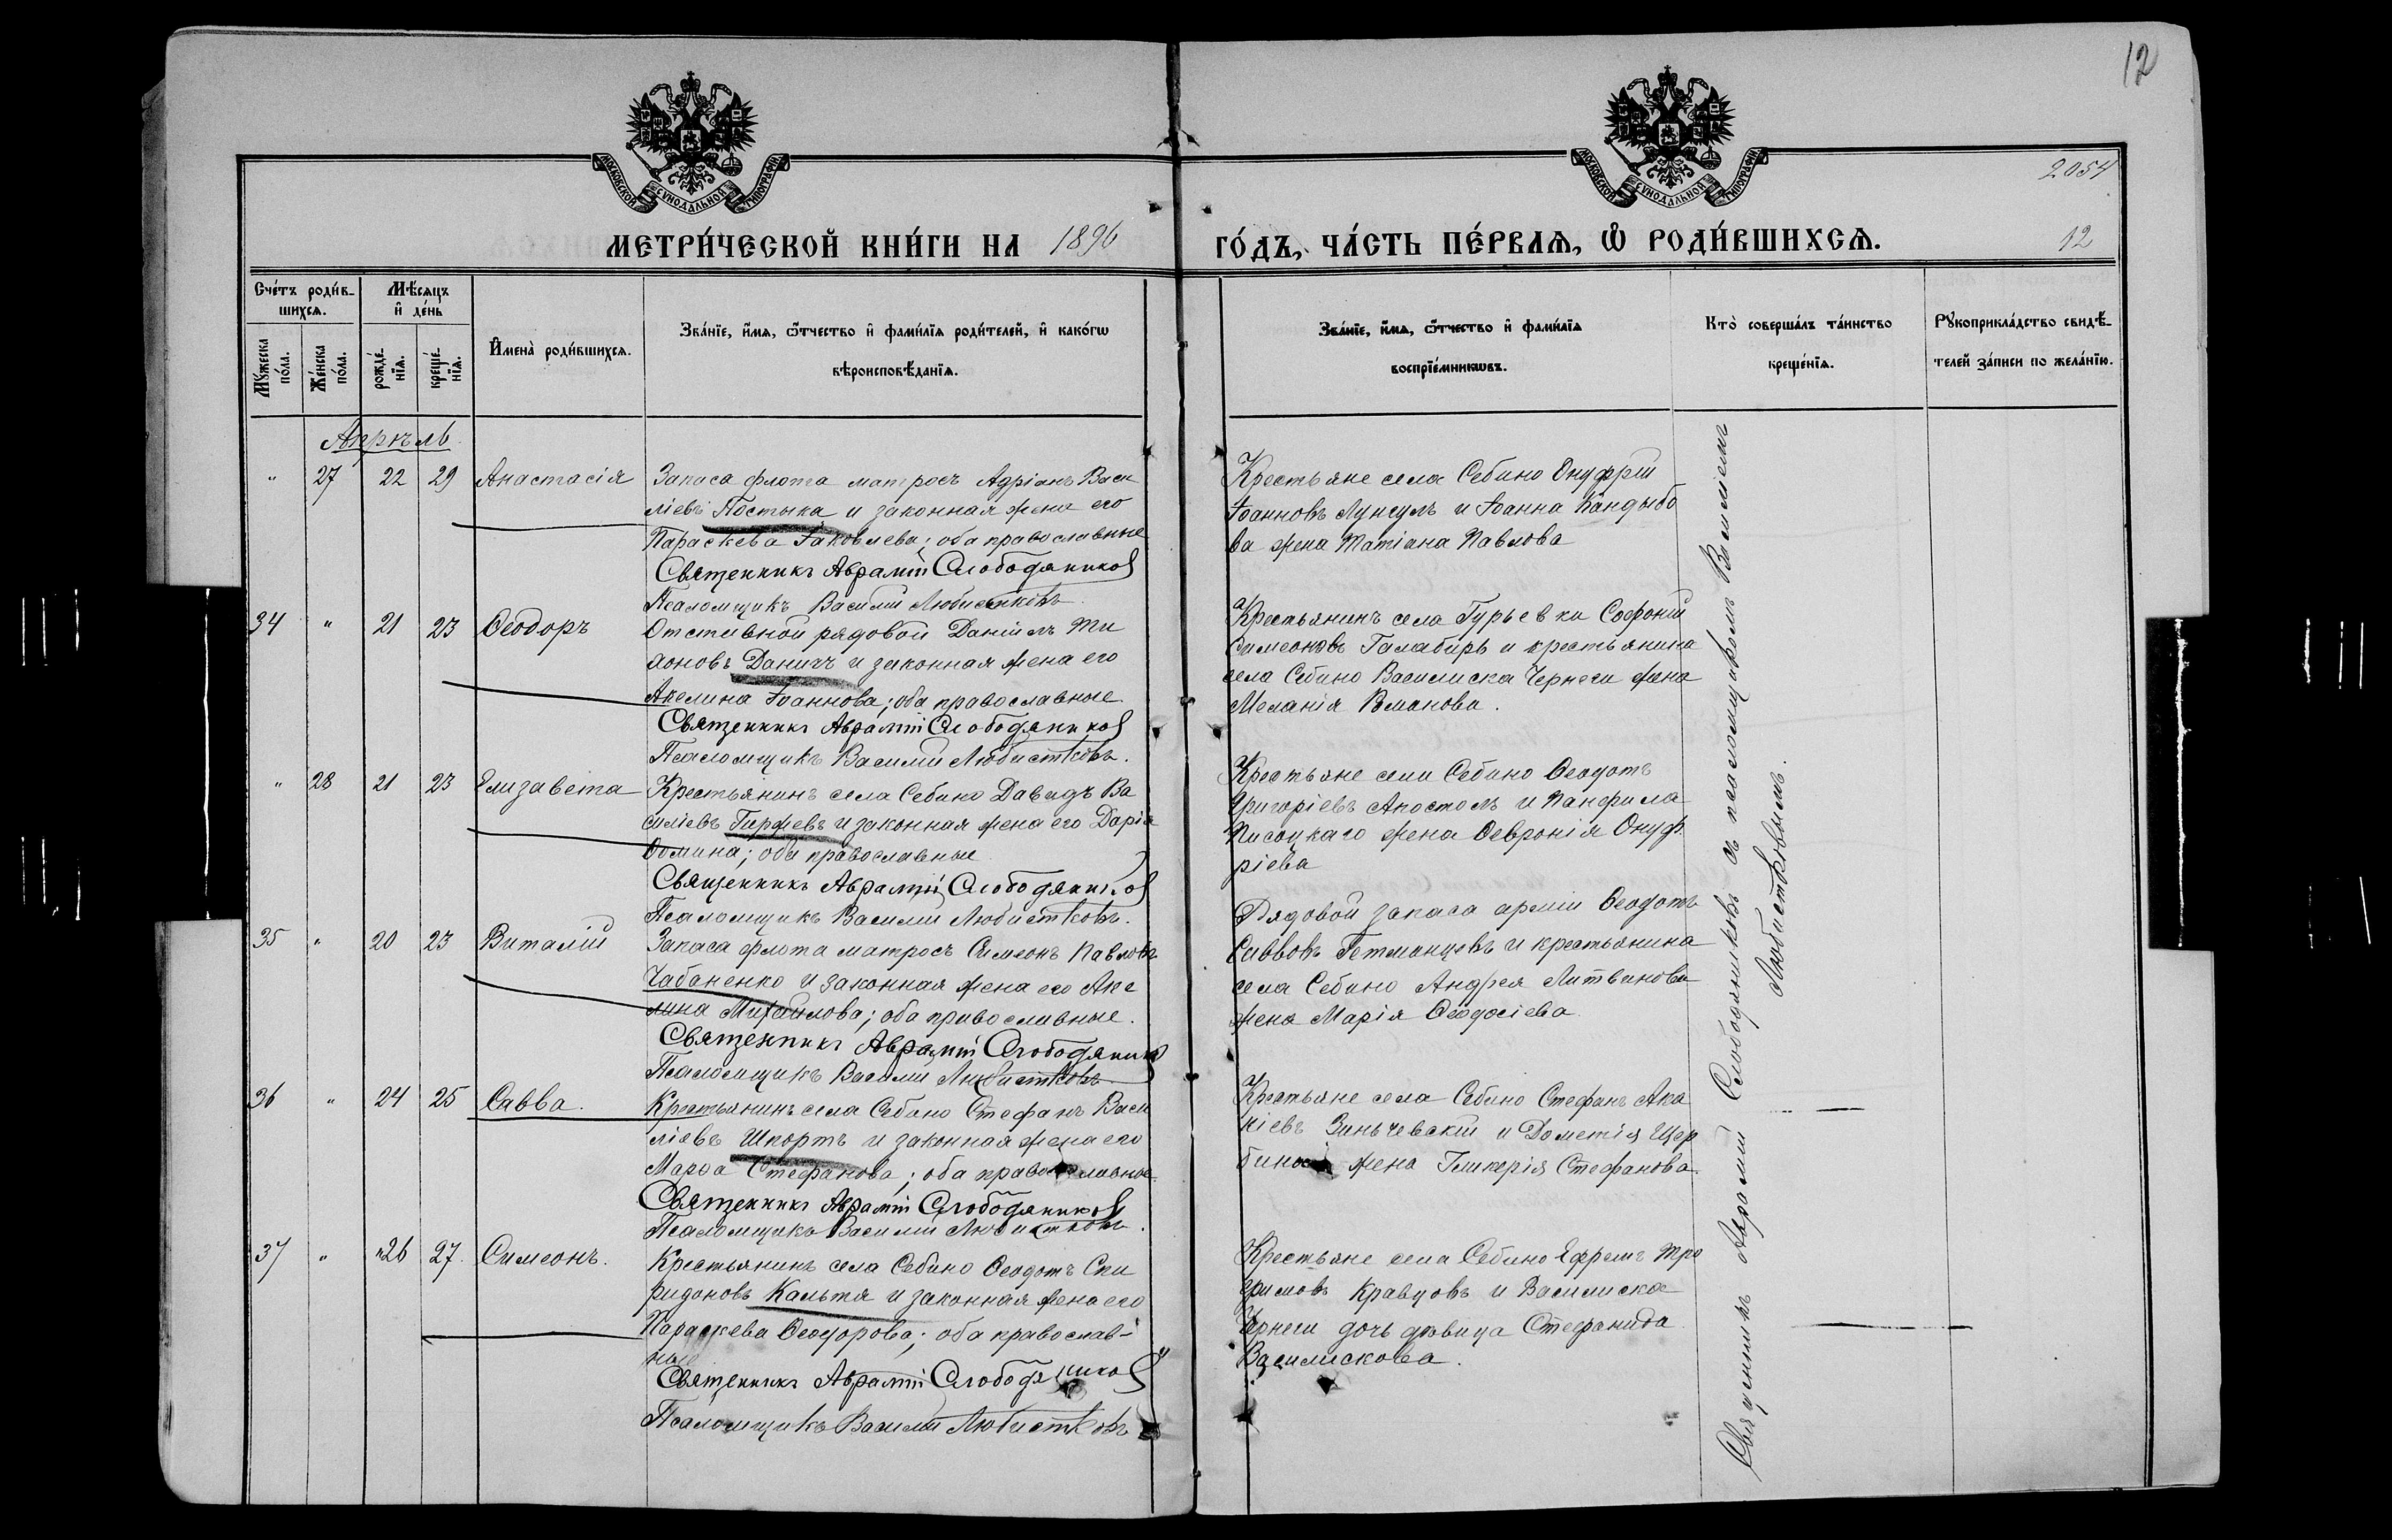 12
МОСКОВСКОЙ СѴНОДАЛЬНОЙ ТИПОГРАФІИ
МОСКОВСКОЙ СѴНОДАЛЬНОЙ ТИПОГРАФІИ
2054
МЕТРИ́ЧЕСКОЙ КНИ́ГИ НА 1896
ГО́ДЪ, ЧА́СТЬ ПЕ́РВАЯ, Ѿ РОДИ́ВШИХСЯ.
12
Сче́тъ роди́в-
шихся.
Му́жеска по́ла.
Же́нска по́ла.
Мѣ́сяцъ
и҆ де́нь
рожде́-
нїя.
креще́-
нїя.
И҆мена̀ роди́вшихся.
Зва́нїе, и҆́мя, ѻ҆́тчество и҆ фами́лїя роди́телей, и҆ како́гѡ
вѣроисповѣ́данїя.
Зва́нїе, и҆́мя, ѻ҆́тчество и҆ фами́лїя
воспрїе́мникѡвъ.
Кто̀ соверша́лъ та́инство
креще́нїя.
Рꙋкоприкла́дство свидѣ́-
телей за́писи по жела́нїю.
Апрѣль
" 27 22 29 Анастасія
Запаса флота матросъ Адріанъ Васи
ліевъ Постыка и законная жена его
Параскева Іаковлева; оба православные
Священникъ Аврамій Слободяников
Псаломщикъ Василій Любистковъ
Крестьяне села Себино Онуфрій
Іоанновъ Лунгулъ и Іоанна Кандыбо
ва жена Татіана Павлова
34 " 21 23 Ѳеодоръ
Отставной рядовой Даніилъ Ти
хоновъ Даничъ и законная жена его
Акелина Іоаннова; оба православные
Священникъ Аврамій Слободяников
Псаломщикъ Василій Любистковъ.
Крестьянинъ села Гурьевки Софоній
Симеоновъ Галабиръ и крестьянина
села Себино Василиска Чернеги жена
Меланія Романова.
" 28 21 23 Елизавета
Крестьянинъ села Себино Давидъ Ва
силіевъ Гиржевъ и законная жена его Дарія
Ѳомина; оба православные
Священникъ Аврамій Слободяников
Псаломщикъ Василій Любистковъ.
Крестьяне села Себино Ѳеодотъ
Григоріевъ Апостолъ и Панфила
Писоцкаго жена Ѳевронія Онуф
ріева
35 " 20 23 Виталій
Запаса флота матросъ Симеонъ Павловъ
Чабаненко и законная жена его Аке
лина Михаилова; оба православные.
Священникъ Аврамій Слободяников
Псаломщикъ Василій Любистковъ
Рядовой запаса арміи Ѳеодотъ
Саввовъ Гетманцевъ и крестьянина
села Себино Андрея Литвинова
жена Марія Ѳеодосіева
36 " 24 25 Савва.
Крестьянинъ села Себино Стефанъ Васи
ліевъ Шпортъ и законная жена его
Марѳа Стефанова; оба православные
Священникъ Аврамій Слободяников
Псаломщикъ Василій Любистковъ.
Крестьяне села Себино Стефанъ Ака
кіевъ Зиньчевскій и Дометія Щер
бины жена Гликерія Стефанова
37 " 26 27 Симеонъ.
Крестьянинъ села Себино Ѳеодотъ Спи
ридоновъ Кальтя и законная жена его
Параскева Ѳеодорова; оба православ-
ные
Священникъ Аврамій Слободяников
Псаломщикъ Василій Любистковъ
Крестьяне села Себино Ефремъ Тро
фимовъ Кравцовъ и Василиска
Чернеги дочь дѣвица Стефанида
Василискова.
Священникъ Аврамій Слободяниковъ съ псаломщикомъ Василіемъ
Любистковымъ.